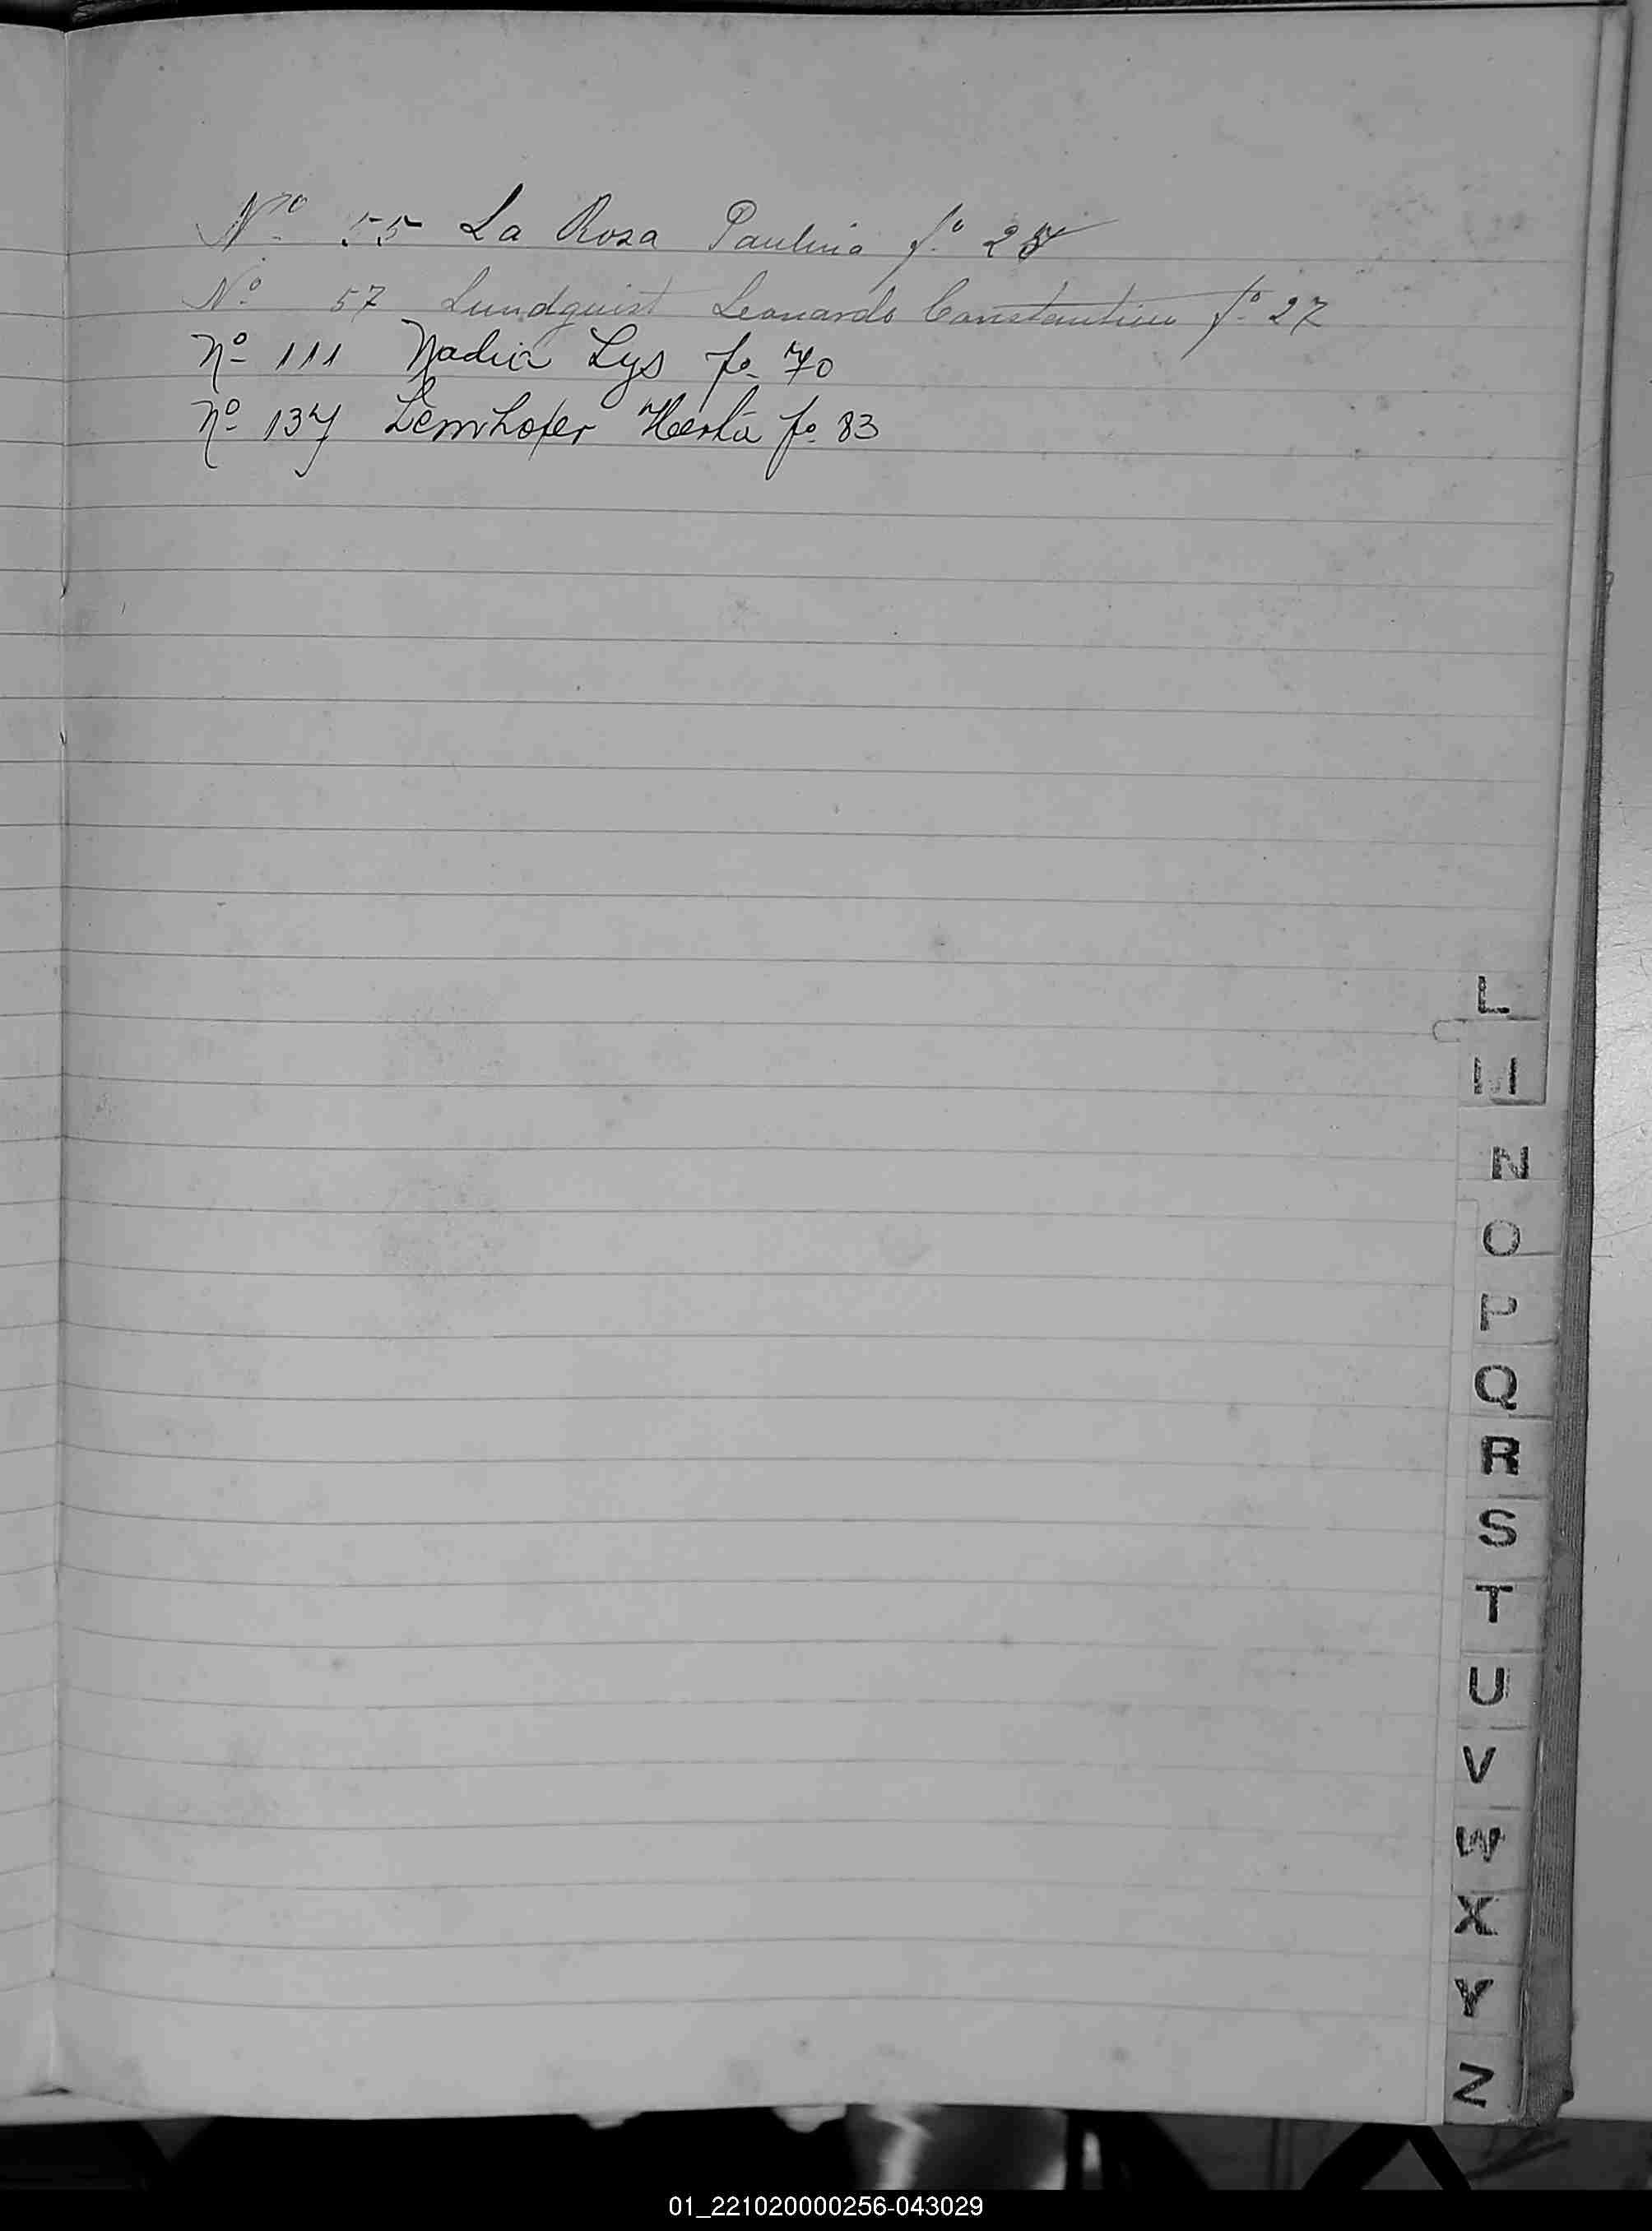 Nº 55 La Rosa Paulina fº 25
Nº 57 Lundquist Leonardo Constantino fº 27
Nº 111 Nadia Lys fº 70
Nº 137 Lemhofer Herta fº 83
L
M
N
O
P
Q
R
S
T
U
V
W
X
Y
Z
01_221020000256-043029